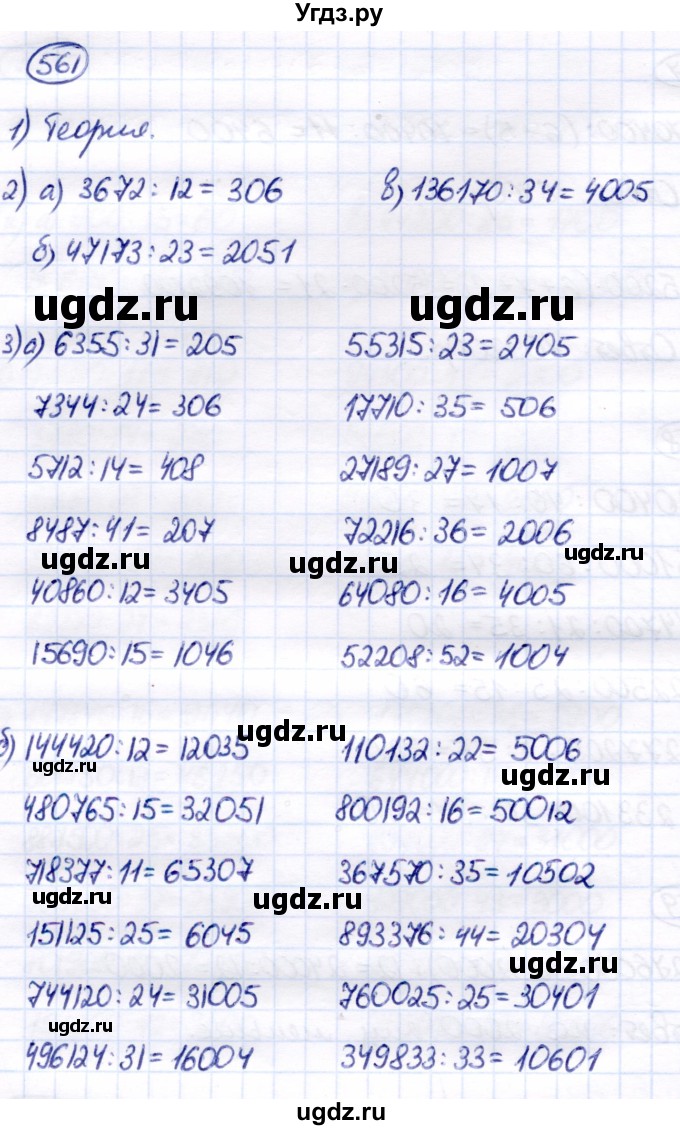 Угдз.ру
561
1) Теория.
2) а) 3672 : 12 = 306
в) 136170 : 34 = 4005
б) 47173 : 23 = 2051
ugdz.ru ugdz.ru
3) а) 6355 : 31 = 205
55315 : 23 = 2405
7344 : 24 = 306
17710 : 35 = 506
5712 : 14 = 408
27189 : 27 = 1007
8487 : 41 = 207
72216 : 36 = 2006
ugdz.ru ugdz.ru ugdz.ru
40860 : 12 = 3405
64080 : 16 = 4005
15690 : 15 = 1046
52208 : 52 = 1004
ugdz.ru
б) 144420 : 12 = 12035
110132 : 22 = 5006
ugdz.ru ugdz.ru
480765 : 15 = 32051
800192 : 16 = 50012
718377 : 11 = 65307
367570 : 35 = 10502
ugdz.ru ugdz.ru
151125 : 25 = 6045
893376 : 44 = 20304
ugdz.ru
744120 : 24 = 31005
760025 : 25 = 30401
ugdz.ru
496124 : 31 = 16004
349833 : 33 = 10601
ugdz.ru